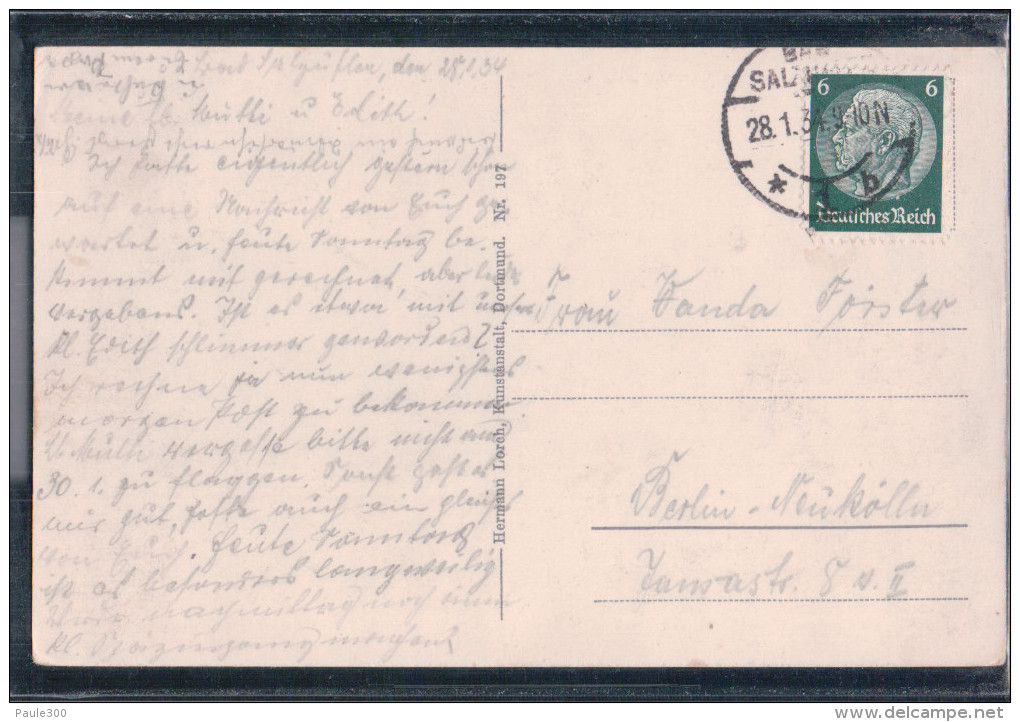 Bad Salzuflen, den 28.1.34
Meine lb. Mutti u Edith!
Ich hatte eigentlich gestern schon
auf eine Nachricht von Euch ge-
wartet u. heute Sonntag be-
stimmt mit gerechnet, aber leider
vergebens. Ist es etwa mit unsrer
kl. Edith schlimmer geworden?
Ich rechne ja nun wenigstens
morgen Post zu bekommen.
Lb. Mutti vergesse bitte nicht am
30. 1. zu flaggen. Sonst geht es
mir gut, hoffe auch ein gleiches
von Euch. Heute Sonntag
ist es besonders langweilig
nachmittag noch einen
kl. Spaziergang machen
Hermann Lorch, Kunstanstalt, Dortmund. Nr. 197
BAD
SALZ
28.1.34.9-10N
* b
6 6
Deutsches Reich
Frau Wanda Förster
Berlin-Neukölln
Jansastr. 8 v. II
Paule300
delcampe.net